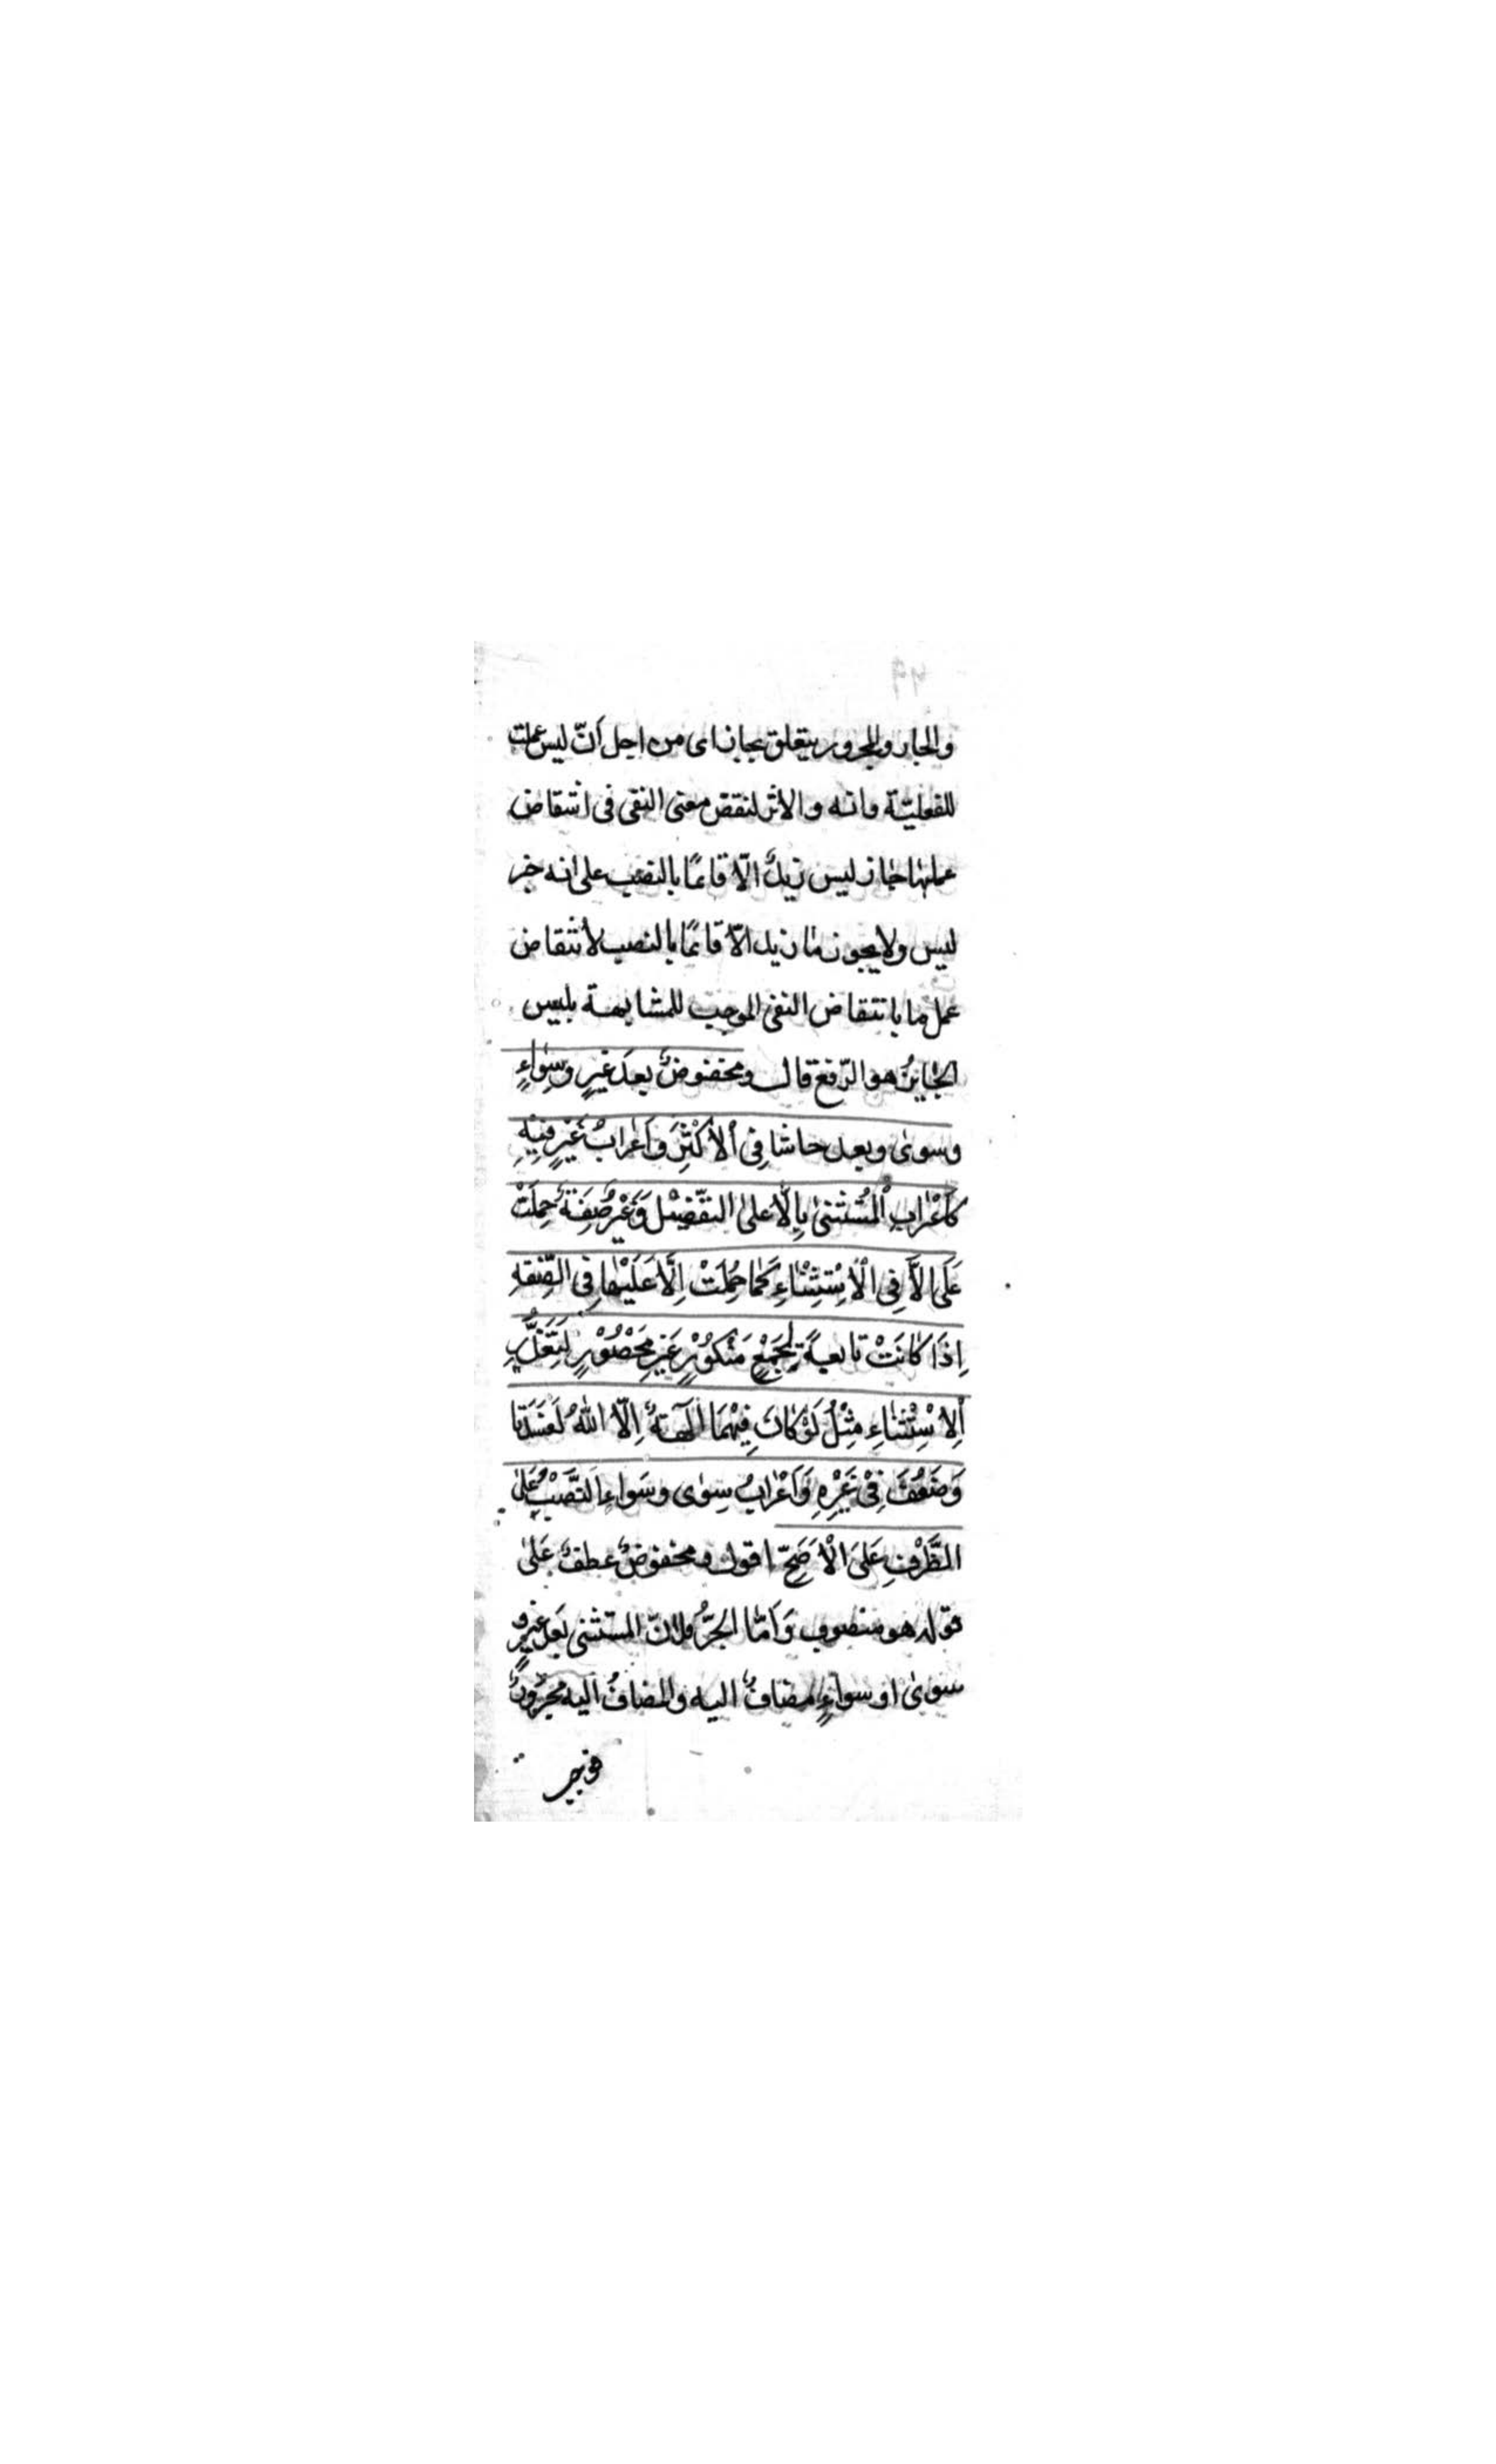 والجار والمجرور يتعلق بجاز اى من اجل انّ ليس عملت
للفعليّة وانه والاثر لنقض معنى النفى فى انتقاض
عملها جاز ليس زيدٌ الّا قائمًا بالنصب على انه خبر
ليس ولا يجوز ما زيد الّا قائمًا بالنصب لأنتقاض
عمل ما بانتقاض النفى الموجب للمشابهة بليس
الجايزُ هو الرّفع قال ومخفوضٌ بعدَ غيرٍ وسِواءٍ
وسوىٰ وبعد حاشا فِى ألأكْثَرِ وَاَعْرابُ غَيْرٍ فِيْهِ
كَاَعْرابِ الْمُسْتثنىٰ بِاِلّا على التفّصِيْل وَغَيْرُ صِفَةٌ حُمِلَتْ
عَلَى الاَّ فِى الْاِسْتِثْنَاءِ كَمَا حُمِلَتْ اِلَّا عَلَيْهَا فِى الصِّفَةِ
اِذَا كَانَتْ تابعةً لِجَمْعٍ مَنْكُوْرٍ غَيرِ مَحْصُوْرٍ لِتَعَذُّرِ
اَلِاسْتِثْنَاءِ مِثْلُ لَوْ كَانَ فِيْهِمَا اٰلهَةٌ اِلّا اللّٰهُ لَفَسَدَتا
وَضَعُفَ فِىْ غَيْرِهِ وَاَعْرَابُ سِوٰى وسَواءٍ اَلنَّصْبُ عَلىٰ
الظَّرْفِ عَلَىَ الْاَصَحِّ اقول ومخفوضٌ عطفٌ عَلىٰ
قوله هو منصوب وَاَمّا الجرُّ فلانّ المستثنى بَعدَ غيرٍ و
سوىٰ او سواءٍ مضافٌ اليه والمضافُ اليه مجرورٌ